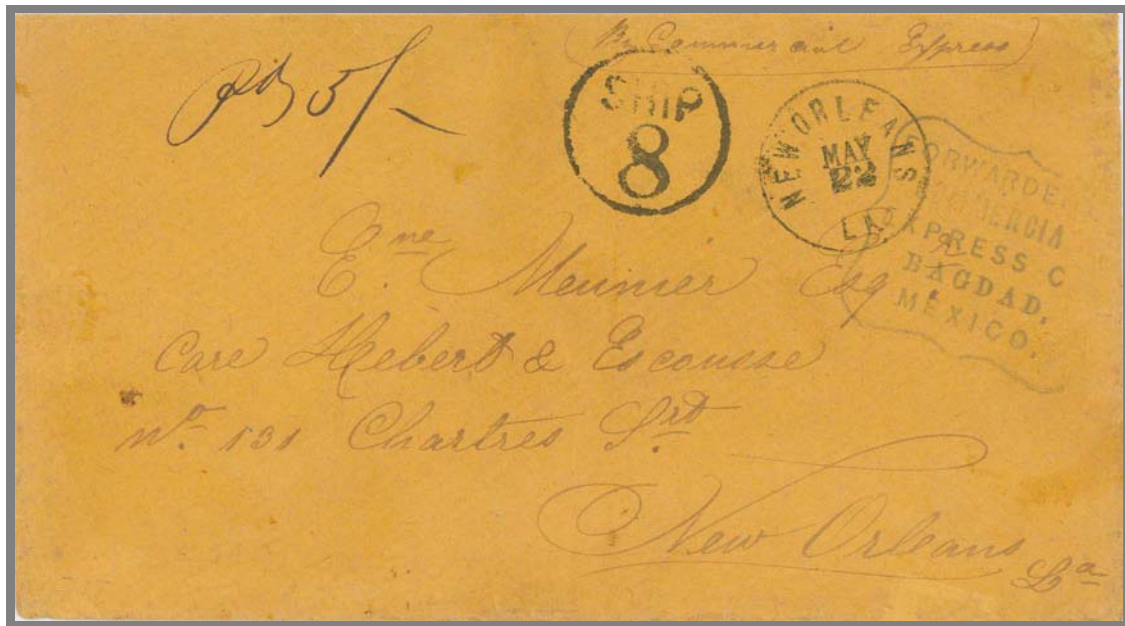 (By Commercial Express)
Pd 5/-
SHIP
8
NEW ORLEANS
MAY
22
LA
FORWARDE
OMMERCIA
EXPRESS C
BAGDAD,
MEXICO.
Ene Meunier Esqr
Care Hebert & Escousse
No. 131 Chartres Srt
New Orleans
La